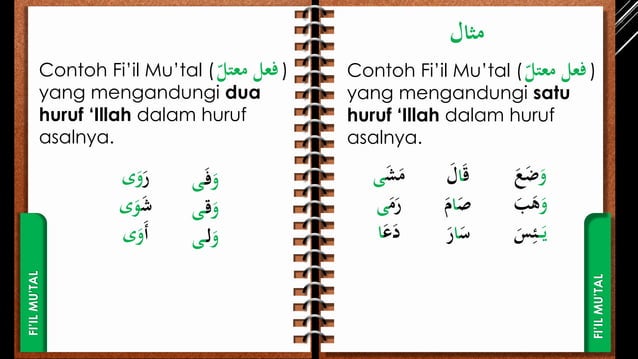 Contoh Fi’il Mu’tal (فعل معتلّ)
yang mengandungi dua
huruf ‘Illah dalam huruf
asalnya.
وَفَى رَوَى
وقى شَوَى
ولى أَوَى
FI’IL MU’TAL
مثال
Contoh Fi’il Mu’tal (فعل معتلّ)
yang mengandungi satu
huruf ‘Illah dalam huruf
asalnya.
وَضَعَ قَالَ مَشَى
وَهَبَ صَامَ رَمَى
يَئِسَ سَارَ دَعَا
FI’IL MU’TAL